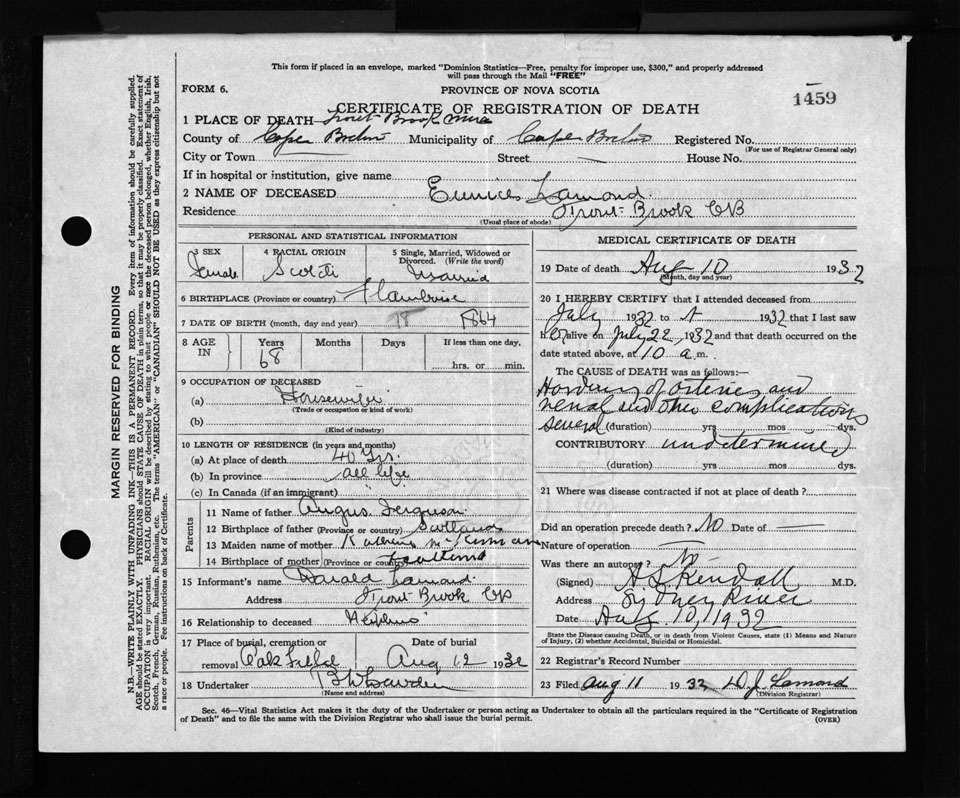 This form if placed in an envelope, marked "Dominion Statistics—Free, penalty for improper use, $300," and properly addressed
will pass through the Mail "FREE"
FORM 6.
PROVINCE OF NOVA SCOTIA
1459
CERTIFICATE OF REGISTRATION OF DEATH
1 PLACE OF DEATH Trout Brook Mira
County of Cape Breton Municipality of Cape Breton Registered No.
(For use of Registrar General only)
City or Town Street — House No.
If in hospital or institution, give name
2 NAME OF DECEASED Eunice Lamond
Residence Trout Brook CB
(Usual place of abode)
PERSONAL AND STATISTICAL INFORMATION
3 SEX Female
4 RACIAL ORIGIN Scotch
5 Single, Married, Widowed or Divorced. (Write the word) Married
6 BIRTHPLACE (Province or country)
7 DATE OF BIRTH (month, day and year) 18 1864
8 AGE IN Years 68 Months Days If less than one day, hrs. or min.
9 OCCUPATION OF DECEASED
(a) Housewife
(Trade or occupation or kind of work)
(b)
(Kind of industry)
10 LENGTH OF RESIDENCE (in years and months)
(a) At place of death 40 Yrs.
(b) In province all life
(c) In Canada (if an immigrant)
Parents
11 Name of father Angus Ferguson
12 Birthplace of father (Province or country) Scotland
13 Maiden name of mother McKinnon
14 Birthplace of mother (Province or country) Scotland
15 Informant's name Harald Lamond
Address Trout Brook CB
16 Relationship to deceased Nephew
17 Place of burial, cremation or removal Oakfield
Date of burial Aug 12 1932
18 Undertaker
(Name and address)
MEDICAL CERTIFICATE OF DEATH
19 Date of death Aug 10 1932
(Month, day and year)
20 I HEREBY CERTIFY that I attended deceased from
July 1932 to 1932 that I last saw
her alive on July 22 1932 and that death occurred on the
date stated above, at 10 a.m.
The CAUSE OF DEATH was as follows:—
Hardening of arteries and
renal and other complications
several (duration) yrs mos dys.
CONTRIBUTORY undetermined
(duration) yrs mos dys.
21 Where was disease contracted if not at place of death?
Did an operation precede death? No Date of —
Nature of operation —
Was there an autopsy? No
(Signed) H S Kendall M.D.
Address Sydney River
Date Aug. 10, 1932
State the Disease causing Death, or in death from Violent Causes, state (1) Means and Nature
of Injury, (2) whether Accidental, Suicidal or Homicidal.
22 Registrar's Record Number
23 Filed Aug 11 1932 D J Lamond
(Division Registrar)
Sec. 46—Vital Statistics Act makes it the duty of the Undertaker or person acting as Undertaker to obtain all the particulars required in the "Certificate of Registration
of Death" and to file the same with the Division Registrar who shall issue the burial permit.
(OVER)
MARGIN RESERVED FOR BINDING
N.B.—WRITE PLAINLY WITH UNFADING INK—THIS IS A PERMANENT RECORD. Every item of information should be carefully supplied.
AGE should be stated EXACTLY. PHYSICIANS should STATE CAUSE OF DEATH in plain terms, so that it may be properly classified. Exact statement of
OCCUPATION is very important. RACIAL ORIGIN will be described by stating to what people or race the deceased person belonged, whether English, Irish,
Scotch, French, German, Russian, Ruthenian, etc. The terms "AMERICAN" or "CANADIAN" SHOULD NOT BE USED as they express citizenship but not
a race or people. See instructions on back of Certificate.